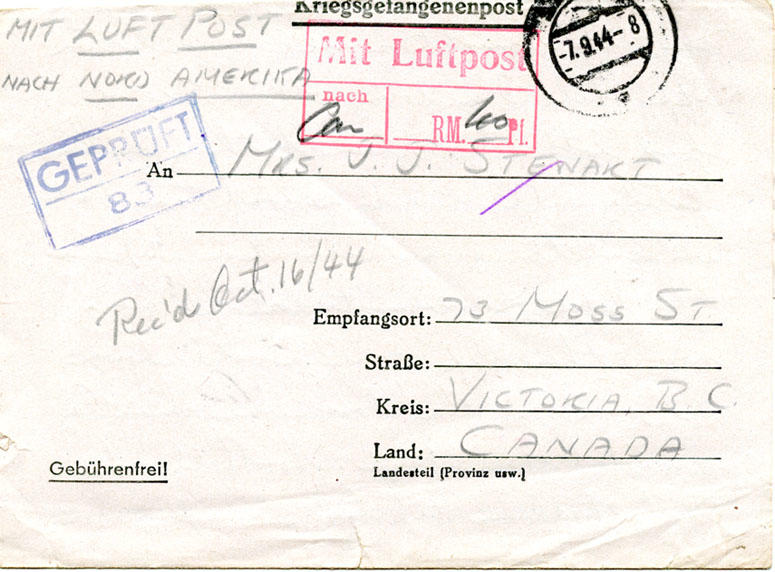 Kriegsgefangenenpost
MIT LUFT POST
NACH NORD AMERIKA
Mit Luftpost
nach
Can RM. 40 Pf.
-7.9.44-8
GEPRÜFT
83
An MRS. J. J. STEWART
Rec'd Oct. 16/44
Empfangsort: 73 MOSS ST
Straße:
Kreis: VICTORIA, B.C.
Land: CANADA
Landesteil (Provinz usw.)
Gebührenfrei!